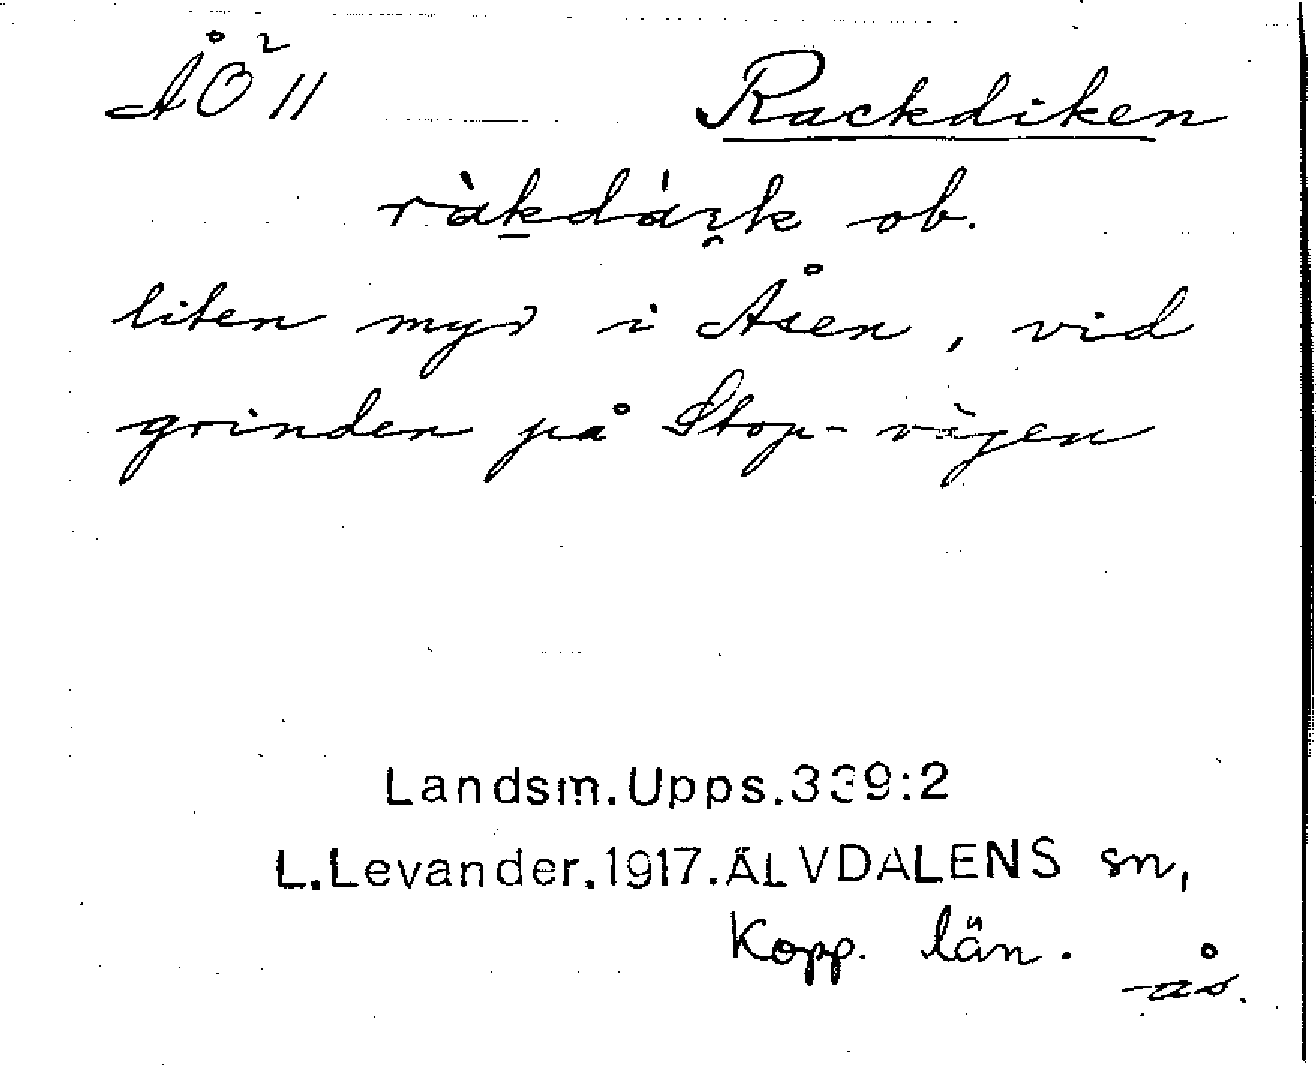 ÅÖ² 11 Rackdiken
ràkdàı̯k ob.
liten myr i Åsen, vid
grinden på Stop-vägen
Landsm.Upps.339:2
L.Levander.1917.ÄLVDALENS sn,
Kopp. län.
ås.